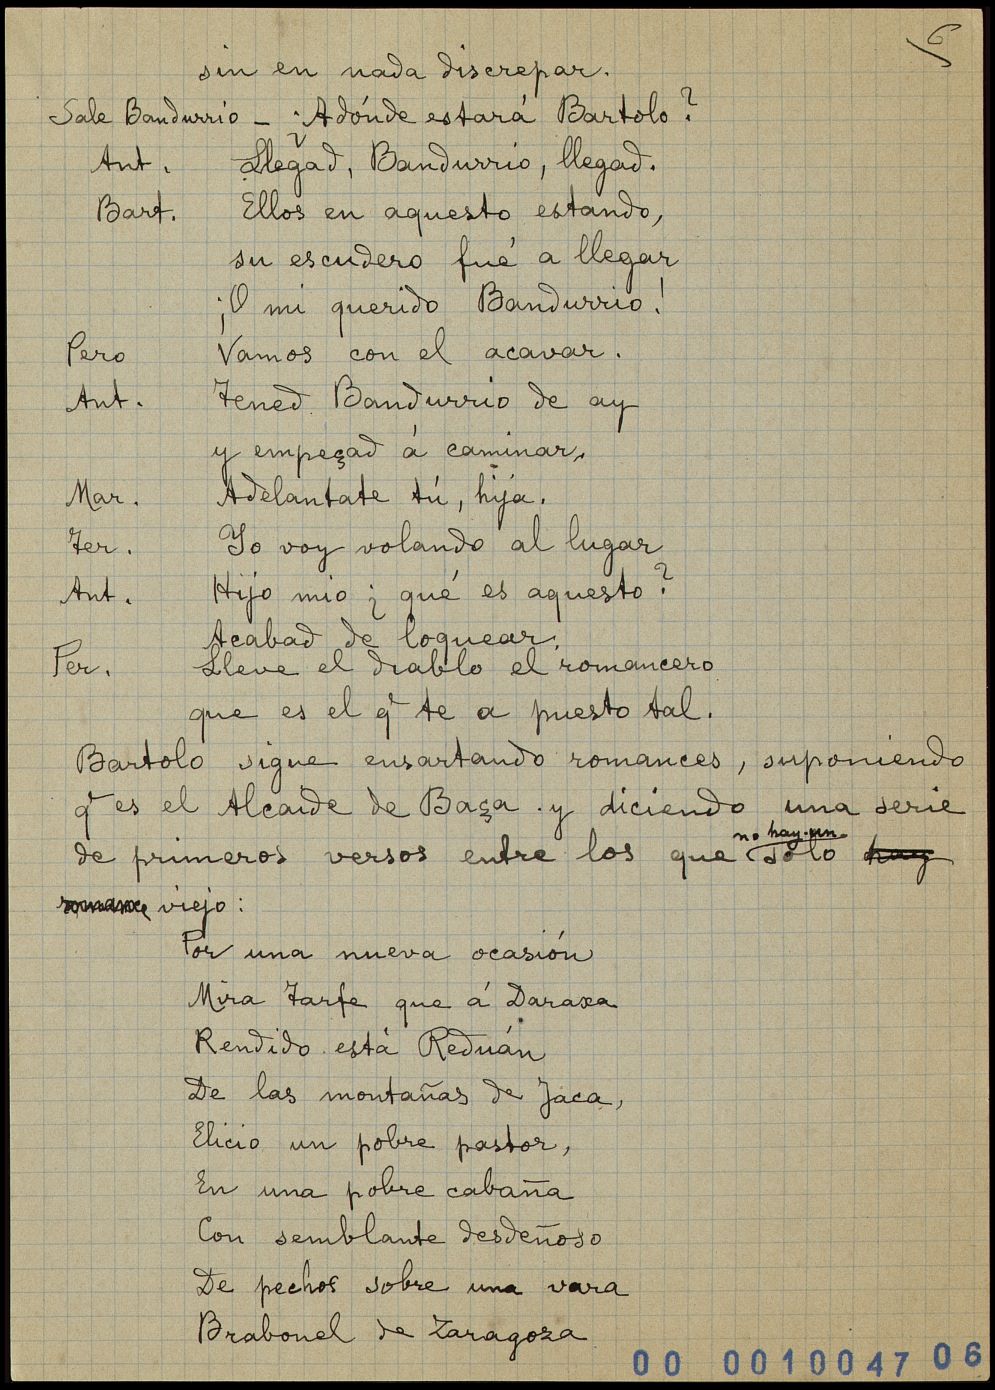 6
sin en nada discrepar.
Sale Bandurrio - ¿Adónde estará Bartolo?
Ant. Llegad, Bandurrio, llegad.
Bart. Ellos en aquesto estando,
su escudero fué a llegar
¡O mi querido Bandurrio!
Pero Vamos con el acavar.
Ant. Tened Bandurrio de ay
y empeçad á caminar.
Mar. Adelantate tú, hija.
Ter. Yo voy volando al lugar
Ant. Hijo mio ¿ qué es aquesto?
Acabad de loquear.
Per. Lleve el diablo el romancero
que es el q̃ te a puesto tal.
Bartolo sigue ensartando romances, suponiendo
q̃ es el Alcaide de Baça y diciendo una serie
no hay un
de primeros versos entre los que solo hay
romance viejo:
Por una nueva ocasión
Mira Tarfe que á Daraxa
Rendido está Reduán
De las montañas de Jaca,
Elicio un pobre pastor,
En una pobre cabaña
Con semblante desdeñoso
De pechos sobre una vara
Brabonel de Zaragoza
00 0010047 06